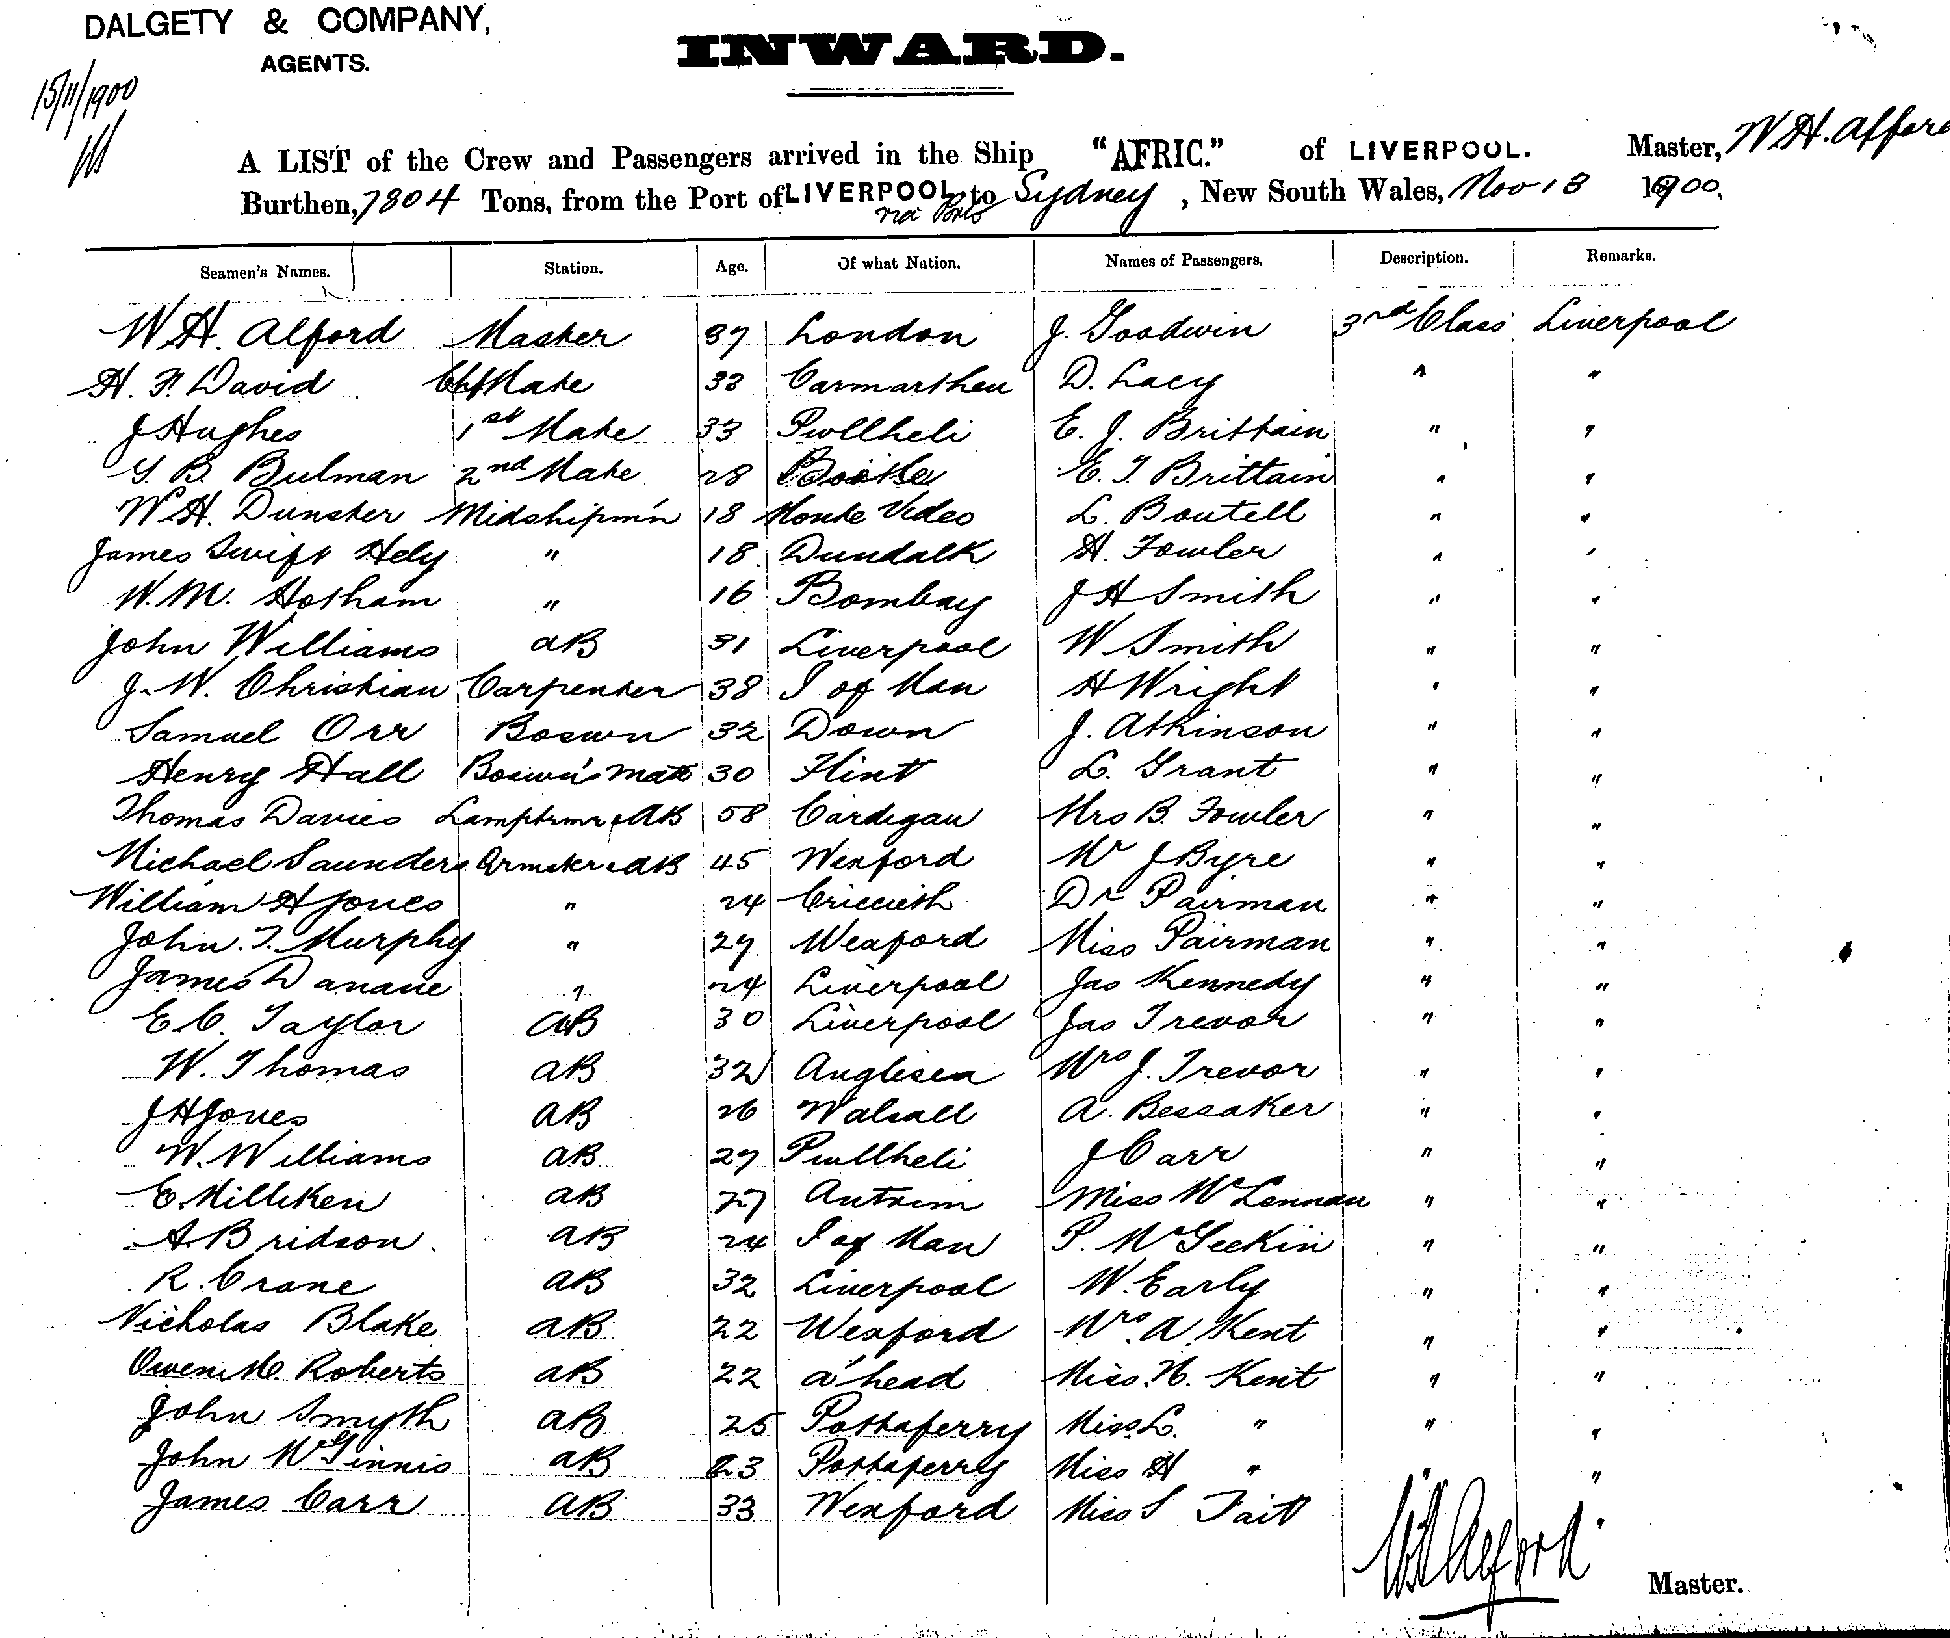 DALGETY & COMPANY,
AGENTS.
INWARD.
15/11/1900
A LIST of the Crew and Passengers arrived in the Ship "AFRIC." of LIVERPOOL. Master, W H. Alford
Burthen, 7804 Tons, from the Port of LIVERPOOL, to Sydney, New South Wales, Nov 13 1900.
via Ports
Seamen's Names. Station. Age. Of what Nation. Names of Passengers. Description. Remarks.
W H. Alford Master 37 London J. Goodwin 3rd Class Liverpool
H. F. David Chf Mate 33 Carmarthen D. Lacy " "
J Hughes 1st Mate 33 Pwllheli E. J. Brittain " "
G. B. Bulman 2nd Mate 28 Bootle E. T. Brittain " "
W. H. Dunster Midshipm'n 18 Monte Video L. Boutell " "
James Swift Hely " 18 Dundalk H. Fowler " "
W. M. Hotham " 16 Bombay J H Smith " "
John Williams AB 31 Liverpool W Smith " "
J. W. Christian Carpenter 38 I of Man H Wright " "
Samuel Orr Boswn 32 Down J. Atkinson " "
Henry Hall Boswn's Mate 30 Flint L. Grant " "
Thomas Davies Lamptrmr & AB 58 Cardigan Mrs B. Fowler " "
Michael Saunders Qrmstr & AB 45 Wexford Mr J Byre " "
William H Jones " 24 Criccieth Dr Pairman " "
John. T. Murphy " 27 Wexford Miss Pairman " "
James Danane " 24 Liverpool Jas Kennedy " "
E C. Taylor AB 30 Liverpool Jas Trevor " "
W. Thomas AB 32 Anglisea Mrs J. Trevor " "
J H Jones AB 26 Walsall A. Bessaker " "
W. Williams AB 27 Pwllheli J Carr " "
E. Milliken AB 27 Antrim Miss McLennan " "
A Bridson AB 24 I of Man P. McGeekin " "
R. Crane AB 32 Liverpool W. Early " "
Nicholas Blake AB 22 Wexford Mrs A. Kent " "
Owen M. Roberts AB 22 a'head Miss. H. Kent " "
John Smyth AB 25 Portaferry Miss L. " " "
John McGinnis AB 23 Portaferry Miss H " " "
James Carr AB 33 Wexford Miss S Tait
W H Alford Master.